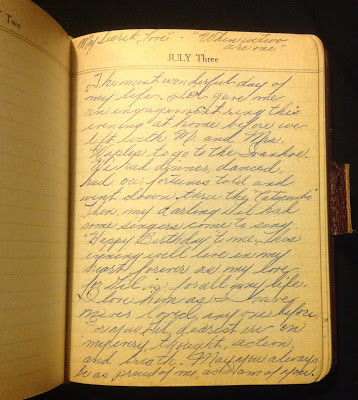 "My Secret Love" - "When we two
are one"
Two
JULY Three
The most wonderful day of
my life. Sil gave me
an engagement ring this
evening at home before we
left with Mr. and Mrs.
to go to the Ivanhoe.
We had dinner, danced
had our fortunes told and
went down thru the "Catacombs"
Then, my darling Sil had
some singers come to sing
"Happy Birthday to me. The
evening will live in my
heart forever as my love
for Sil is, for all my life.
I love him as I have
never loved, any one before.
Sil, dearest
my every thought, action,
and breath. May you always
be as proud of me, as I am of you.